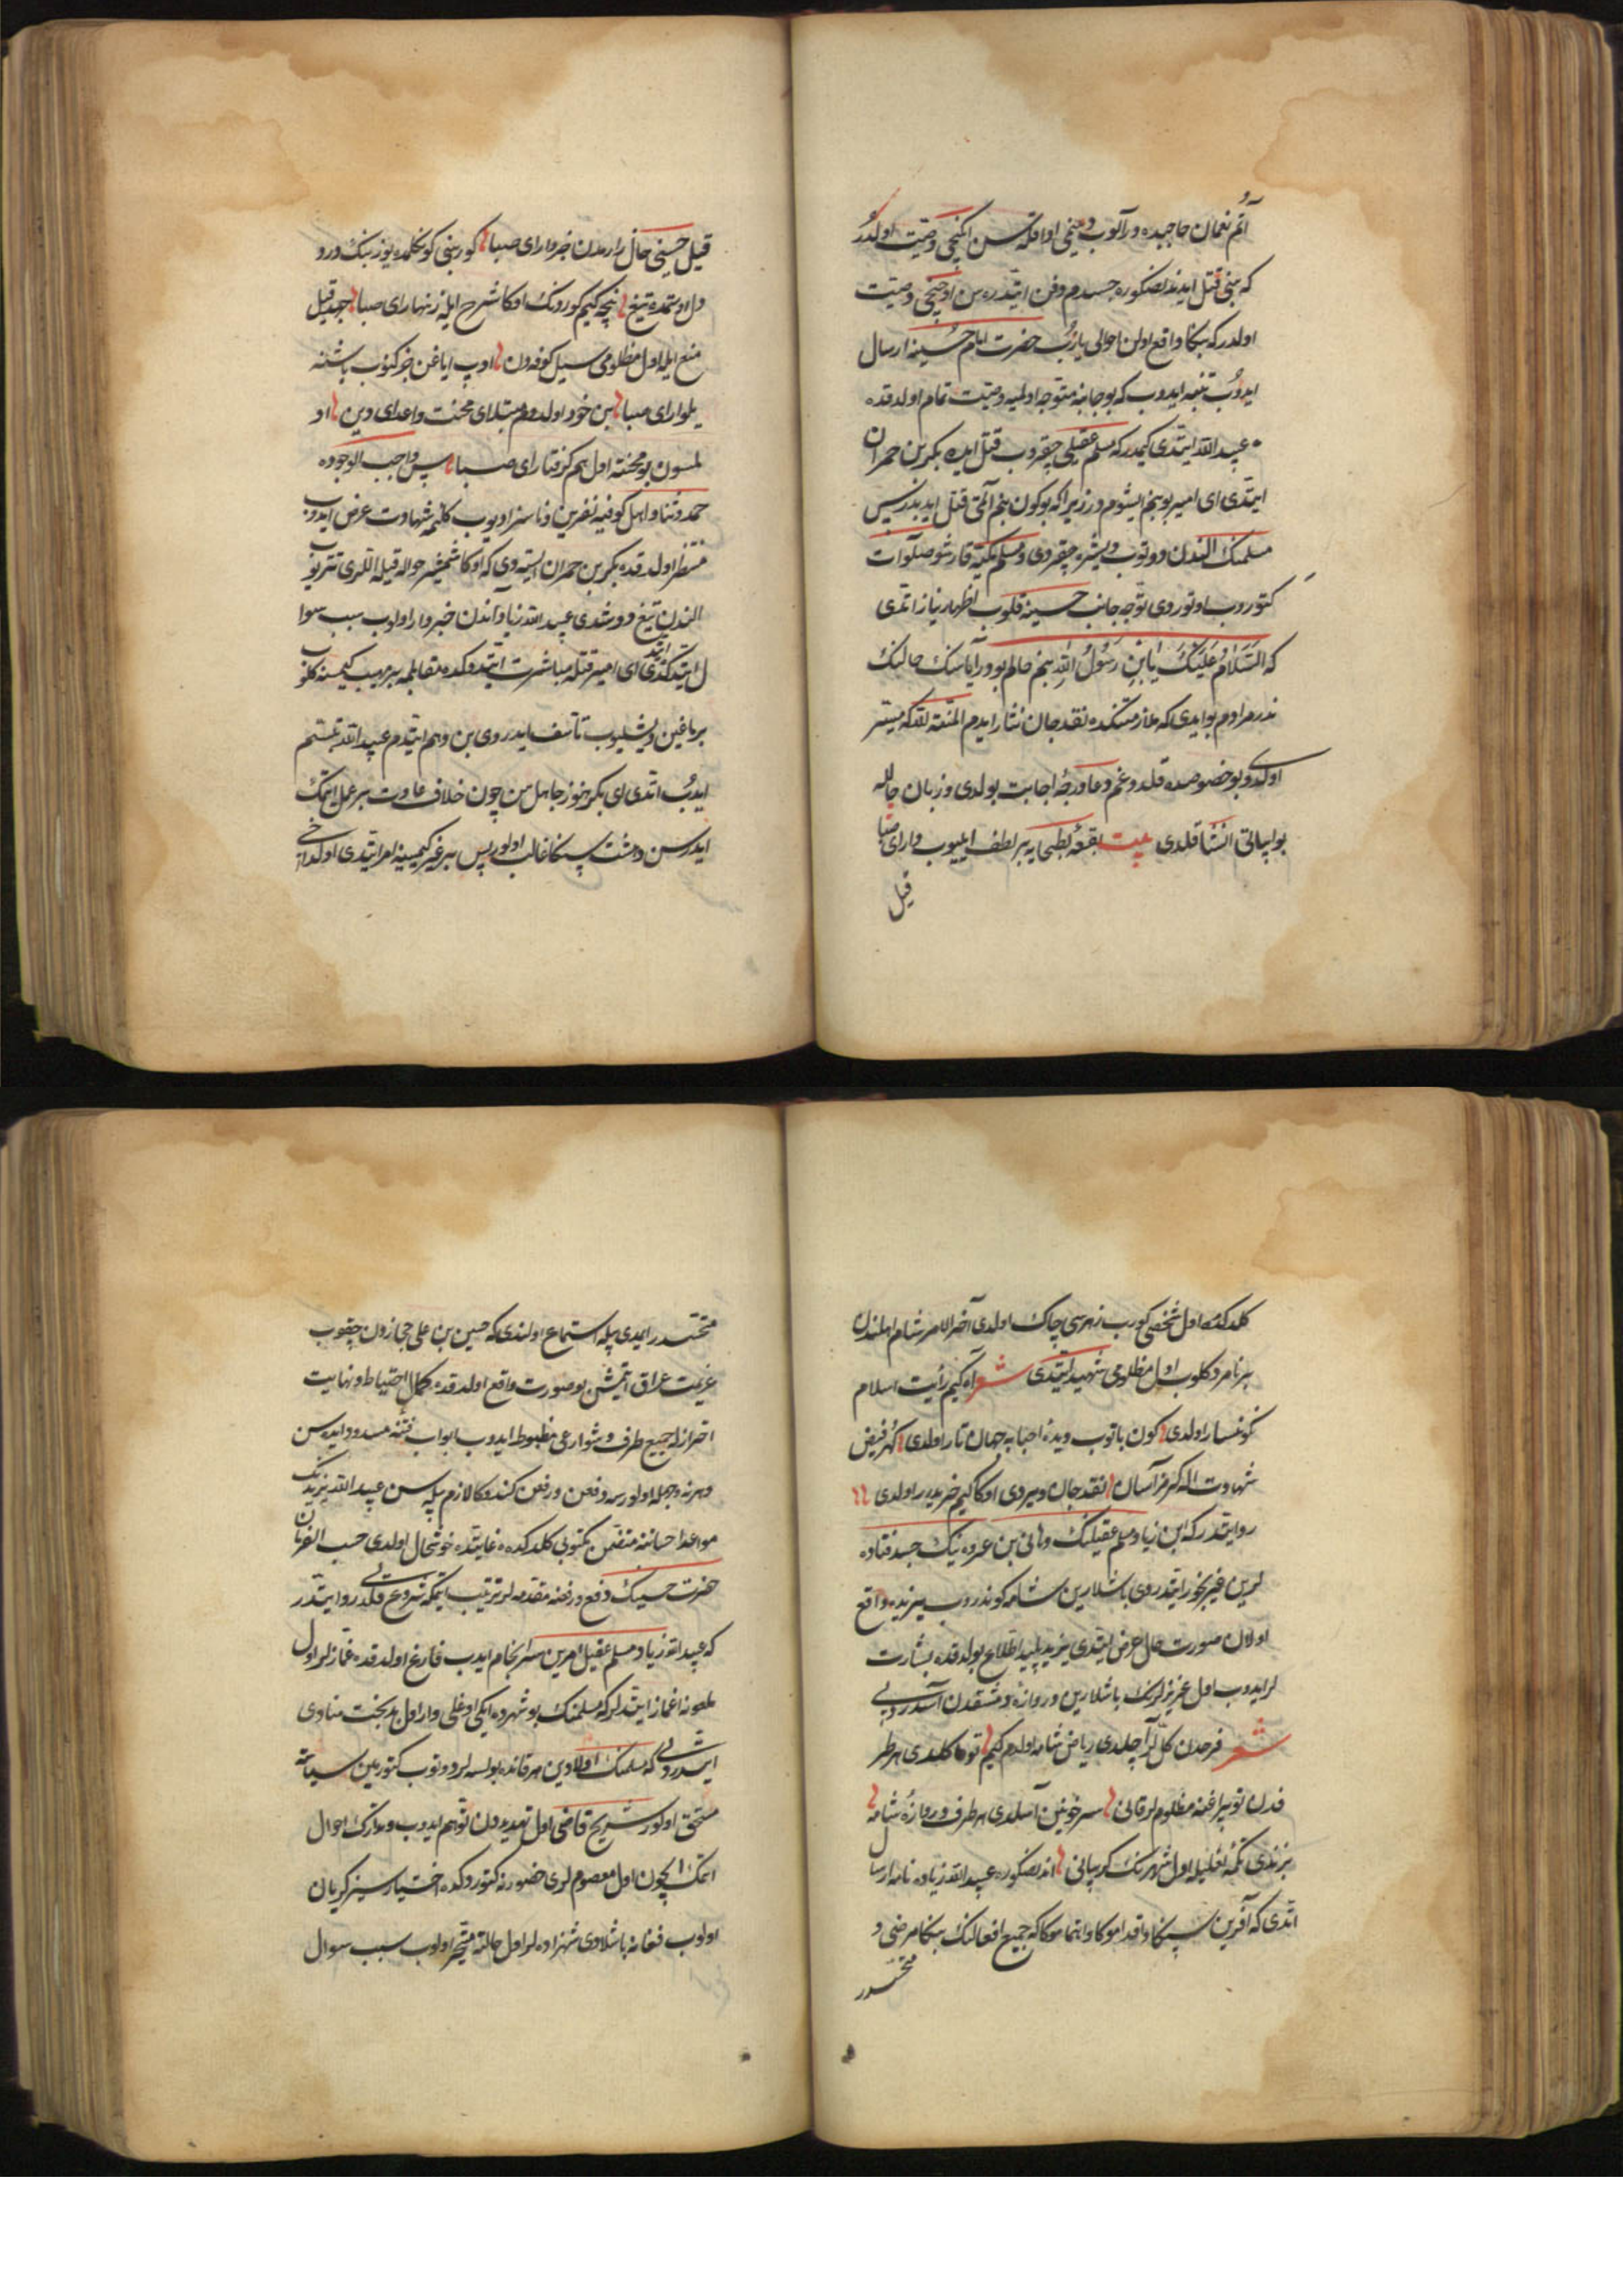 آتم نعمان حاجبده در آلوب دینمی ادا قلسن ایکنجی وصیت اولدر
که بنی قتل ایدندنصکوره جسدم دفن ایتدره سن اوچنجی وصیت
اولدر که بنکا واقع اولن احوالی یازب حضرت امام حسینه ارسال
ایدوب تنبیه ایدوب که بو جانبه متوجه اولمیه وصیت تمام اولدقده
عبید الله ایتدی کیمدر که مسلم عقیلی چقروب قتل ایده بکر بن حمران
ایتدی ای امیر بو بنم ایشومدر زیرا که بوکون بنم آتمی قتل ایدبدر پس
مسلمنک الندن دوتوب دیشره چقردی و مسلم مکیه قارشو صلوات
کتوروب اوتوردی توجه جانب حسینه قلوب اظهار نیاز اتدی
که السلام علیک یا ابن رسول الله بنم حالم بودر آیا سنک حالنک
ندر مرادم بو ایدی که ملازمتکده نقد جان نثار ایدم المنة لله که میسر
اولدی و بو خصوصده قلدوغم دعا درجهٔ اجابت بولدی و زبان حالله
بو ابیاتی انشا قلدی بیت بقعهٔ بطحایه بر لطف ایلیوب وار ای صبا
قیل
قیل حسینی حال زارمدن خبردار ای صبا کور بنی کونکلمده یوز بنک درد
دل اوستمده تیغ نیچه کیم کوردنک اوکا شرح ایله زنهار ای صبا جهد قیل
منع ایله اول مظلومی سیل کوفه دن اوپ ایاغن خبر کتوب باشنه
یلوار ای صبا بن خود اولدوم مبتلای محنت و اعدای دین او
لمسون بو محنته اول هم کرفتار ای صبا پس واجب الوجوده
حمد و ثنا و اهل کوفیه نفرین و ناسزا دیوب کلمه شهادت عرض ایدوب
منتظر اولدقده بکر بن حمران ایستدی که اوکا شمشیر حواله قیله اللری تتریوب
الندن تیغ دوشدی عبید الله زیاد آندن خبردار اولوب سبب سوا
ل ایتدکده ایتدی ای امیر قتله مباشرت ایتدوکده مقابلمه بر مهیب کیمسنه کلوب
برماغین دیشلیوب تأسف ایدردی بن وهم ایتدم عبید الله تبسم
ایدوب اتدی ای بکر هنوز جاهل سن چون خلاف عادت بر عمل ایتمک
ایدرسن دهشت سنکا غالب اولور پس بر غیر کیمسیه امر ایتدی اول داخی
کلدکده اول شخصی کورب زهرسی چاک اولدی آخر الامر شام اهلندن
بر نامرد کلوب اول مظلومی شهید ایتدی شعر آه کیم رأیت اسلام
نکونسار اولدی کون باتوب دیدهٔ احبابه جهان تار اولدی کهر فیض
شهادت اله کرمز آسان نقد جان ویردی اوکا کیم خریدار اولدی
روایتدر که ابن زیاد مسلم عقیلنک و هانی بن عروه نینک جسد فتاده
لرین باشلارین شامه کوندروب یزیده واقع
اولان صورت حال عرض ایتدی یزید پلید اطلاع بولدقده بشارت
لر ایدوب اول عزیزلرنک باشلارین دروازهٔ دمشقدن آسدردیبی
شعر فرحدن کل لر آچلدی ریاض شامه اولدم کیم کلدی هر طر
فدن توپراغنه مظلوملر قانی سر خونین آسلدی هر طرف دروازهٔ شامه
بزندی تکمهٔ لعلیله اول شهرنک کریبانی اندنصکوره عبید الله زیاده نامه ارسال
اتدی که آفرین سنکا و اقدامکا و اهتمامکا که جمیع افعالنک بنکا مرضی و
مستحسندر
مستحسندر ایمدی بیله استماع اولندی که حسین بن علی حجازدن چقوب
عزیمت عراق اتمیش بو صورت واقع اولدقده کمال احتیاط و نهایت
احترازله جمیع طرف و شوارعی مضبوط ایدوب ابواب فتنه مسدود ایده سن
و هر نه وجهله اولورسه دفعن و رفعن کندوکا لازم بیله سن عبید الله یزیدنک
مواعد احساننه متضمن مکتوبی کلدکده غایتده خوشحال اولدی حسب الفرمان
حضرت حسینک دفع و رفعنه مقدمه لر ترتیب ایتمکه شروع قلدی روایتدر
که عبید الله زیاد مسلم عقیل امرین سرانجام ایدب فارغ اولدقده غمازلر اول
ملعونه اغماز ایتدیلر که مسلمنک بو شهرده ایکی اوغلی وار اول بدبخت منادی
ایتدردی که مسلمنک اولادین هر قانده بولسه لر دوتوب کتورمین سیاسته
مستحق اولور شریح قاضی اول تهدیددن توهم ایدوب و تدارک احوال
اتمک ایچون اول معصوملری حضورنه کتوردکده اختیارسیز کریان
اولوب فغانه باشلادی شهزاده لر اول حالته متحیر اولوب سبب سوال